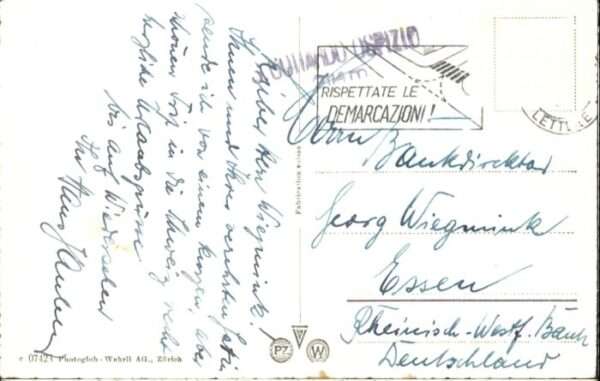 Lieber Herr Wiegmink!
Ihnen und Ihrer verehrten Gattin
sende ich von einem kurzen, aber
schönen Trip in die Schweiz recht
herzliche Urlaubsgrüsse
bis auf Wiedersehen
Ihr Hans
OSPIZIO
RISPETTATE LE
DEMARCAZIONI!
LETTERE
Herrn
Bankdirektor
Georg Wiegmink
Essen
Rheinisch-Westf. Bank
Deutschland
Fabrication suisse
PZ W
07424 Photoglob-Wehrli AG., Zürich